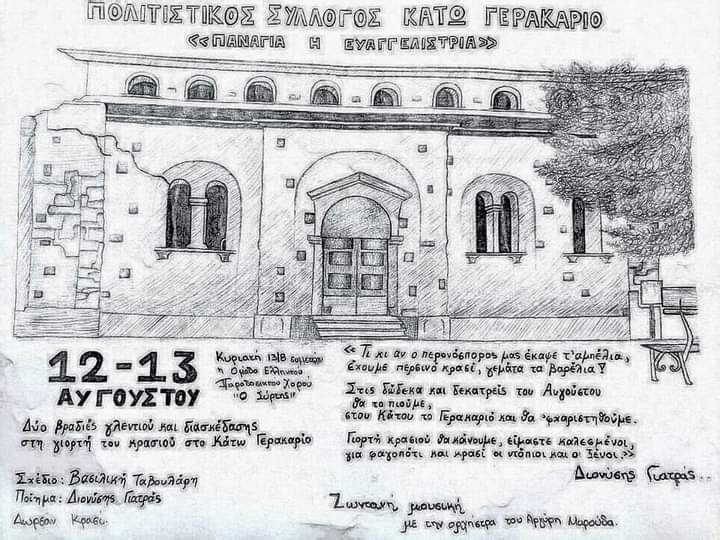 ΠΟΛΙΤΙΣΤΙΚΟΣ ΣΥΛΛΟΓΟΣ ΚΑΤΩ ΓΕΡΑΚΑΡΙΟ
<<ΠΑΝΑΓΙΑ Η ΕΥΑΓΓΕΛΙΣΤΡΙΑ>>
12-13
ΑΥΓΟΥΣΤΟΥ
Κυριακή 13/8
η Ομάδα Ελληνικού
Παραδοσιακού Χορού
"Ο Σύρτης"
Δύο βραδιές γλεντιού και διασκέδασης
στη γιορτή του κρασιού στο Κάτω Γερακαρίο
Σχέδιο: Βασιλική Ταβουλάρη
Ποίημα: Διονύσης Γιατράς
Δωρεάν Κρασί.
<<Τι κι αν ο περονόσπορος μας έκαψε τ'αμπέλια,
έχουμε περσινό κρασί, γεμάτα τα βαρέλια!
Στις δώδεκα και δεκατρείς του Αυγούστου
θα το πιούμε,
στου Κάτου το Γερακαριό και θα 'φχαριστηθούμε.
Γιορτή κρασιού θα κάνουμε, είμαστε καλεσμένοι,
για φαγοπότι και κρασί οι ντόπιοι και οι ξένοι.>>
Διονύσης Γιατράς..
Ζωντανή μουσική
με την ορχήστρα του Αργύρη Μαρούδα.